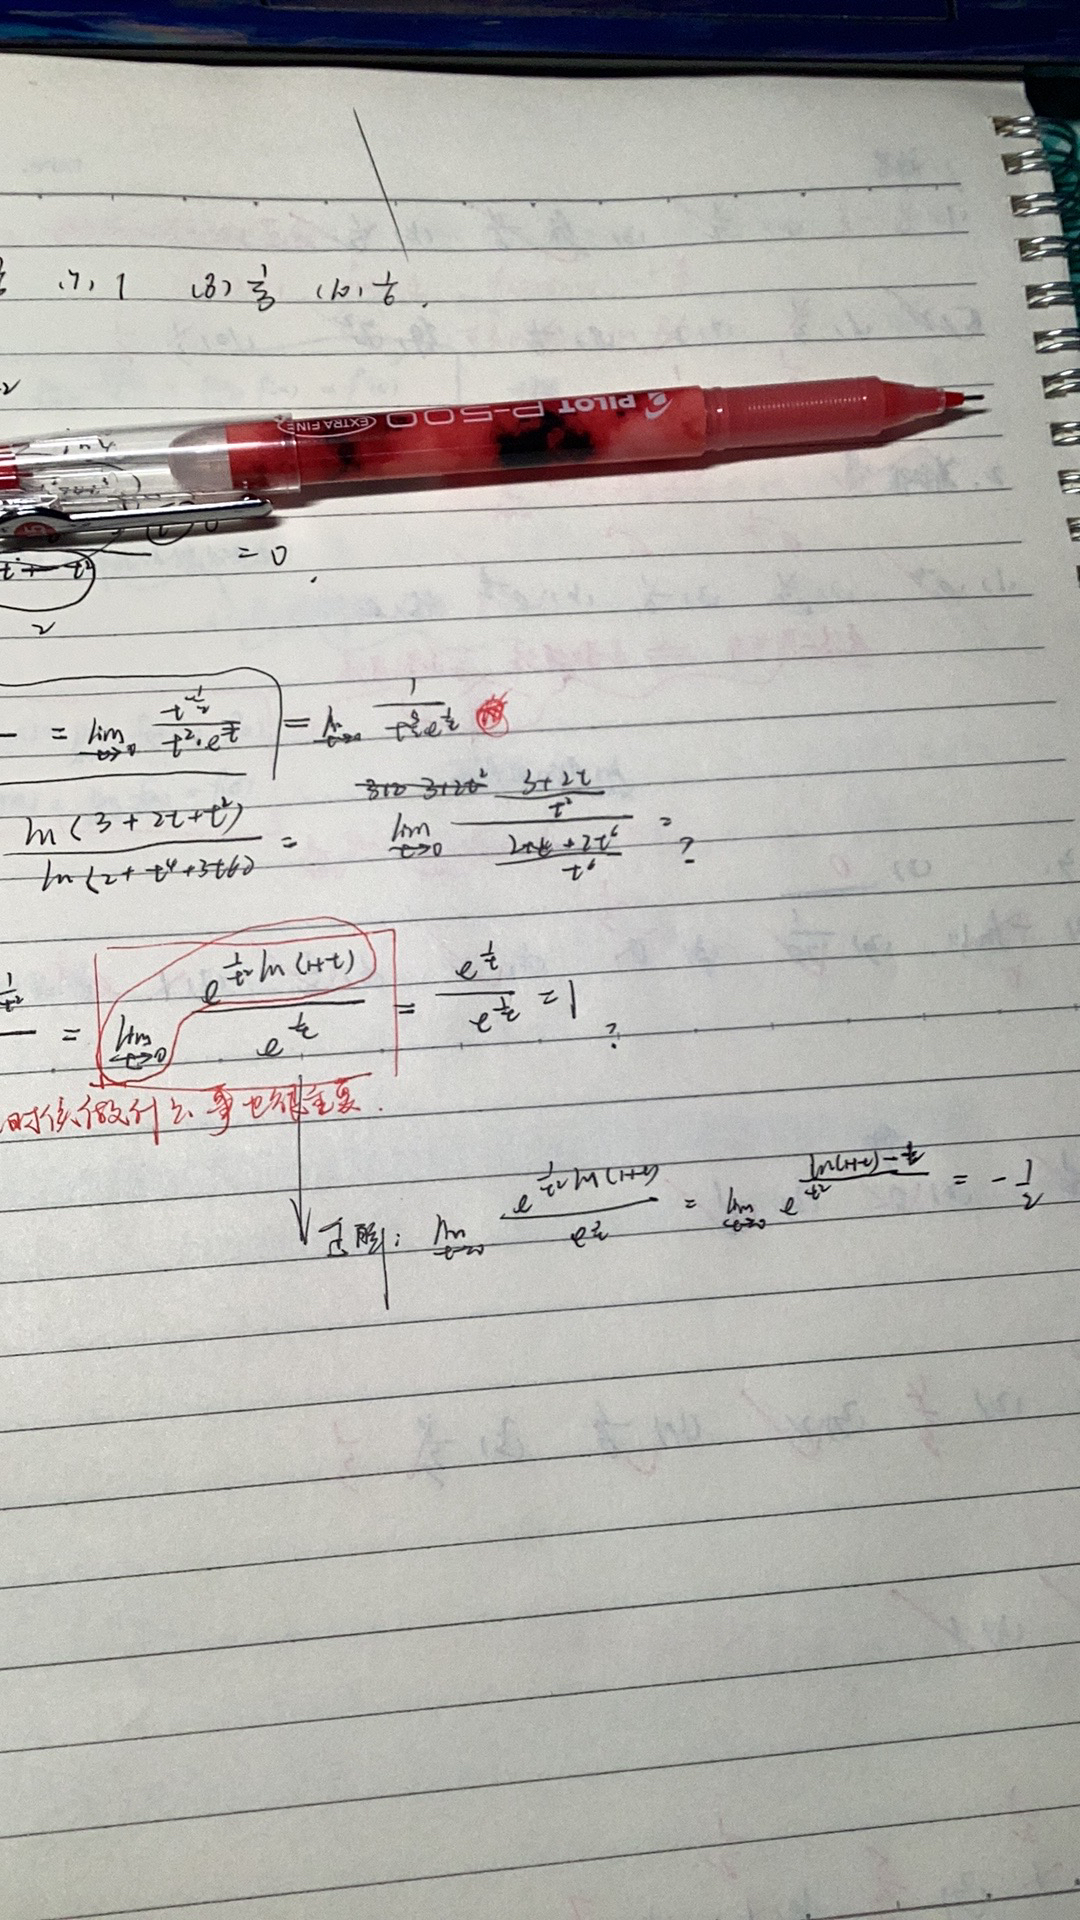 (7) 1 (8) 1/3 (10) 1/6.
PILOT P-500 EXTRA FINE
= 0
2
= lim t→0 t^(-1/2) / (t²·e^(1/t)) = lim t→0 1 / (e^(1/t))
ln(3+2t+t²) / ln(2+t⁴+3t6) = lim t→0 ((3+2t)/t²) / ((+2t⁶)/t⁶) = ?
= lim t→0 e^(1/t² ln(1+t)) / e^(1/t) = e^(1/t) / e^(1/t) = 1 ?
时候做什么事也很重要.
正解: lim t→0 e^(1/t² ln(1+t)) / e^(1/t) = lim t→0 e^((ln(1+t)-t)/t²) = -1/2